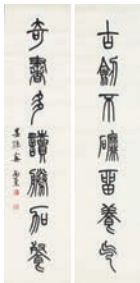 古劍不磨留養氣
奇書多讀勝加餐